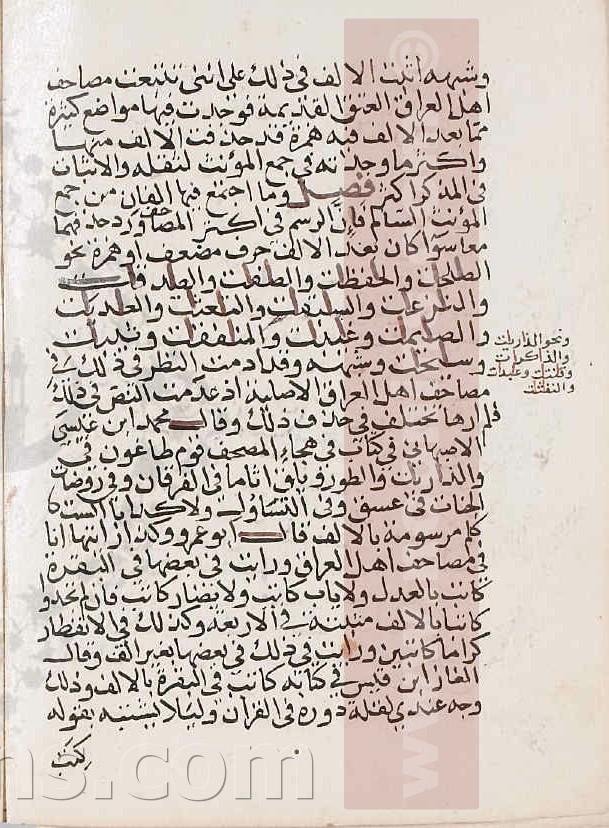 وشبهه اثبت الالف في ذلك على انني تتبعت مصاحف
اهل العراق العتق القديمة فوجدت فيها مواضع كثيرة
مما بعد الالف فيه همزة قد حذفت الالف منها
واكثر ما وجدته في جمع المؤنث لثقله والاثبات
في المذكر اكثر فصل وما اجتمع فيها الفان من جمع
المؤنث السالم فان الرسم في اكثر المصاحف ورد حذفهما
معا سوا كان بعد الالف حرف مضعف او همزة نحو
الصلحت والحفظت والصفت والصدقت
والنزعت والسبقت
والصئمت وغيبت والمنفقت وثيبت
وسئحت وشبهه وقد امعنت النظر في ذلك في
مصاحف اهل العراق الاصلية اذ عدمت النص في ذلك
فلم ارها تختلف في حذف ذلك وقال محمد ابن عيسى
الاصبهاني في كتاب في هجاء المصحف قوم طاغون في
والذاريات والطور ويلق اثاما في الفرقان وفي روضات
الجنات في عسق وفي التساول ولا كذابا اكتتابـ
كلم مرسومة بالالف قال ابو عمرو وكذا رايتها انا
في مصاحف اهل العراق ورايت في بعضها في البقرة
كاتب بالعدل ولا ياب كاتب ولا يضار كاتب فان لم تجدوا
كاتبا بالالف مثبتة في الاربعة وكذلك في الانفطار
كراما كاتبين ورايت في ذلك في بعضها بغير الف وقال
الغاز ابن قيس في كتابه كاتب في البقرة بالالف وذلك
وجه عندي لقلة دوره في القران وليلا يشتبه بقوله
كتب
ونحو الذاريات
والذاكرات
وقانتات وعابدات
والنفاثات